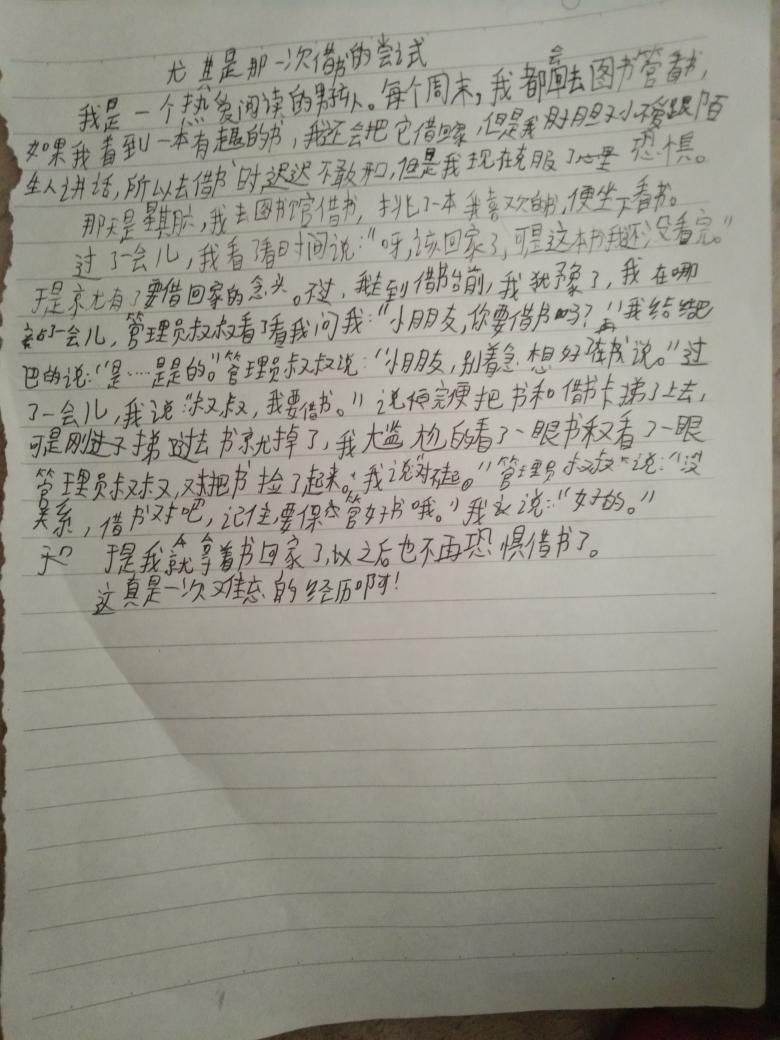 尤其是那一次借书的尝试
我是一个热爱阅读的男孩。每个周末，我都会去图书管看书，
如果我看到一本有趣的书，我还会把它借回家，但是我胆小不敢跟陌
生人讲话，所以去借书时迟迟不敢，但是我现在克服了心里恐惧。
那天是星期六，我去图书馆借书，挑了一本我喜欢的书，便坐下看书。
过了一会儿，我看了看时间说：“呀，该回家了，可是这本书我还没看完。”
于是就有了要借回家的念头。不过，我走到借书台前，我犹豫了，我在哪
站了一会儿，管理员叔叔看了看我问我：“小朋友，你要借书吗？”我结结巴
巴的说：“是……是是的。”管理员叔叔说：“小朋友，别着急想好了再说。”过
了一会儿，我说：“叔叔，我要借书。”说完便把书和借书卡递了上去，
可是刚递过去书就掉了，我尴尬的看了一眼书又看了一眼
管理员叔叔，又把书捡了起来。我说“对不起。”管理员叔叔说：“没
关系，借书对吧，记住，要保管好书哦。”我说：“好的。”
于是我就拿着书回家了，以之后也不再恐惧借书了。
这真是一次难忘的经历啊！